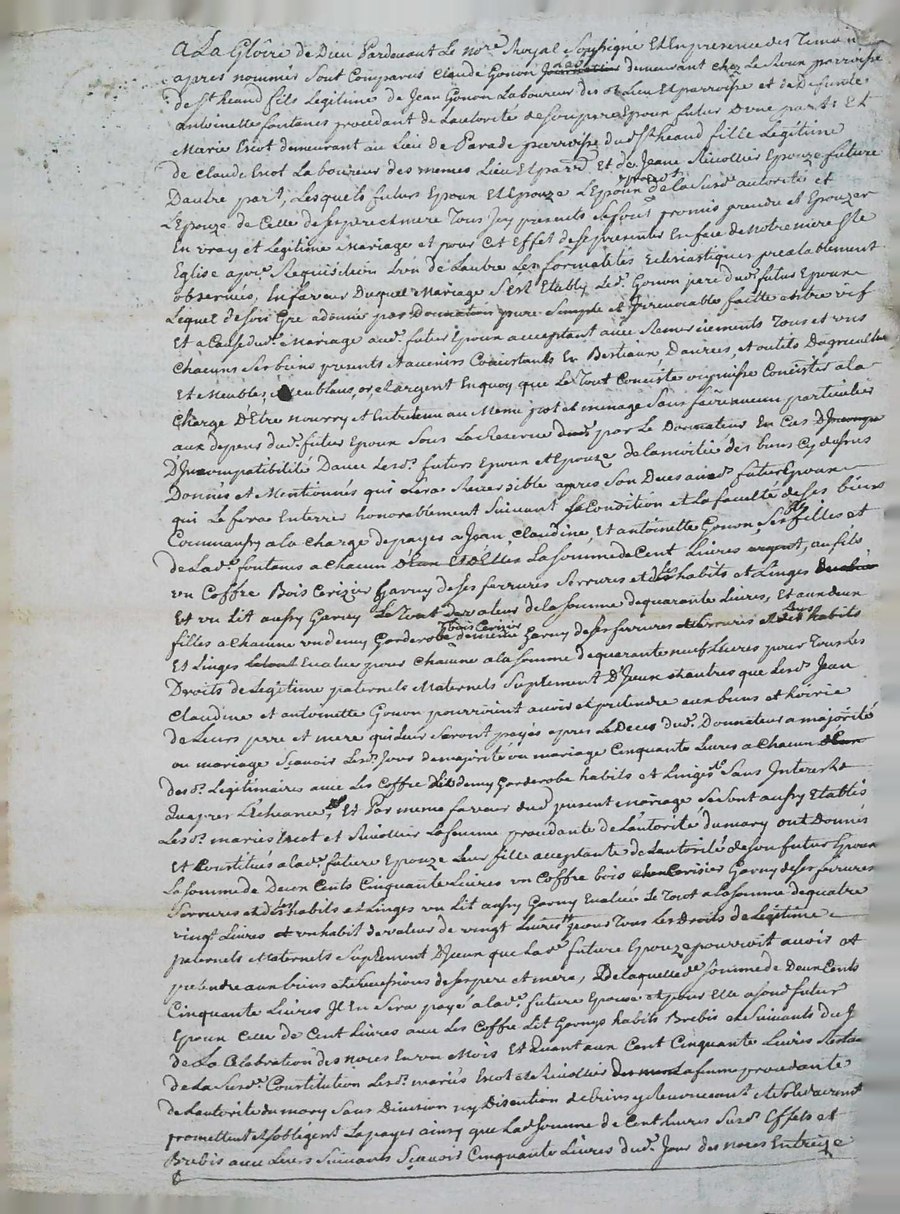 A La Gloire de Dieu Pardevant Le nore Royal Soussigné Et En presence des Temoins
apres nommés sont Comparus Claude Gonon demeurant chez Le Roux parroisse
de st heand fils Legitime de Jean Gonon Laboureur des d lieu Et parroisse et de Defunte
antoinette fontanes procedant de Lautorité de son pere Epoux futur Dune part; Et
Marie Exot demeurant au Lieu de Parade parroisse dud st heand fille Legitime
de Claude Exot Laboureur des memes Lieu Et parse Et de Jeane Rivollier Epouze future
Dautre part, Lesquels futurs Epoux Et Epouze L'Epoux procedt de la susde autorité et
L'Epouze de Celle de ses pere et mere Tous Icy presents Se sont promis prendre et Epouzer
En vray et Legitime Mariage et pour Cet Effet de se presenter En face de Notre mere Ste
Eglise a pre Requisition L'un de Lautre Les formalités Eclesiastiques prealablement
observées, En faveur Duquel Mariage S'est Etably Led. Gonon pere dud. futur Epoux
Lequel de son Gré a donné par Donnation pure Simple et Irrevocable faitte entre vif
Et a Cause dud. Mariage aud. futur Epoux acceptant avec Remerciements Tous et uns
chacuns Ses biens presents et avenirs Consistants En Bestiaux Danrées, et outils Dagriculture
Et Meubles, Meublans, or, et argent En quoy que Le Tout Consiste ou puisse Consister a la
Charge D'Etre nourry et Entretenu au Meme pot et menage Sans faire aucun particulier
aux depens dud. futur Epoux Sous La Reserve par Le Donnateur En Cas
D'Incompatibilité Davec Lesd. futurs Epoux et Epouze de la moitié des biens Cy dessus
Donnés et Mentionnés qui Sera Reversible apres Son Deces aud. futur Epoux
qui Le fera Enterrer honorablement Suivant Sa Condition et La faculté de Ses biens
Comm'aussy a la Charge de payer a Jean Claudine, Et antoinette Gonon, Ses fils filles et
de Lad. fontanes a Chacun La Somme de Cent Livres argent, au fils
un Coffre Bois Cerizier Garny de Ses ferrures Serrures et Ses habits et Linges
Et un Lit aussy Garny Le Tout de valeur de la Somme de quarante Livres, Et aux deux
filles a Chacune un demy Garderobe bois Cerizier de meme Garny de Ses ferrures Serrures et Leurs habits
Et Linges Le tout Evalué pour Chacune a la Somme de quarante neuf Livres pour Tous Les
Droits de Legitime paternels Maternels Suplement D'Iceux et autres que Lesd. Jean
Claudine et antoinette Gonon pourroient avoir et pretendre aux biens et hoirie
de Leurs pere et mere qui Leur Seront payés apres Le Deces dud. Donnateur a majorité
ou mariage Sçavoir Lesd. Jour de majorité ou mariage Cinquante Livres a Chacun
desd. Legitimaires avec Les Coffre Lit demy Garderobe habits et Linges Sans Interests
Et Par meme faveur dud present mariage Se sont aussy Etablis
Lesd. mariés Exot et Rivollier La femme procedante de L'autorité du mary ont Donnés
Et Constitués a lad. future Epouze Leur fille acceptante de L'autorité de son futur Epoux
La Somme de Deux Cents Cinquante Livres un Coffre bois Cerizier Garny de Ses ferrures
Serrures et Ses habits et Linges un Lit aussy Garny Evalué Le Tout a la Somme de quatre
vingt Livres et un habit de valeur de vingt Livres pour Tous Les Droits de Legitime
paternels Maternels Suplement D'Iceux que Lad. future Epouze pourroit avoir et
pretendre aux biens et Successions de ses pere et mere, De laquelle de Somme de Deux Cents
Cinquante Livres Il En Sera payé a lad. future Epouze et pour Elle a Sond. futur
Epoux Celle de Cent Livres avec Les Coffre Lit Garnys habits Brebis et Suivants du J
de La Celebration des noces En un Mois Et Quant aux Cent Cinquante Livres Restan
de La Susde Constitution Lesd. mariés Exot et Rivollier La femme procedante
de L'autorité du mary Sans Division ny Discution de biens y Renonceant et Solidairement
promettent et S'obligent La payer ainsy que Lad. Somme de Cent Livres Susd. Effets et
Brebis avec Leurs Suivants Sçavoir Cinquante Livres dud. Jour des noces En treize